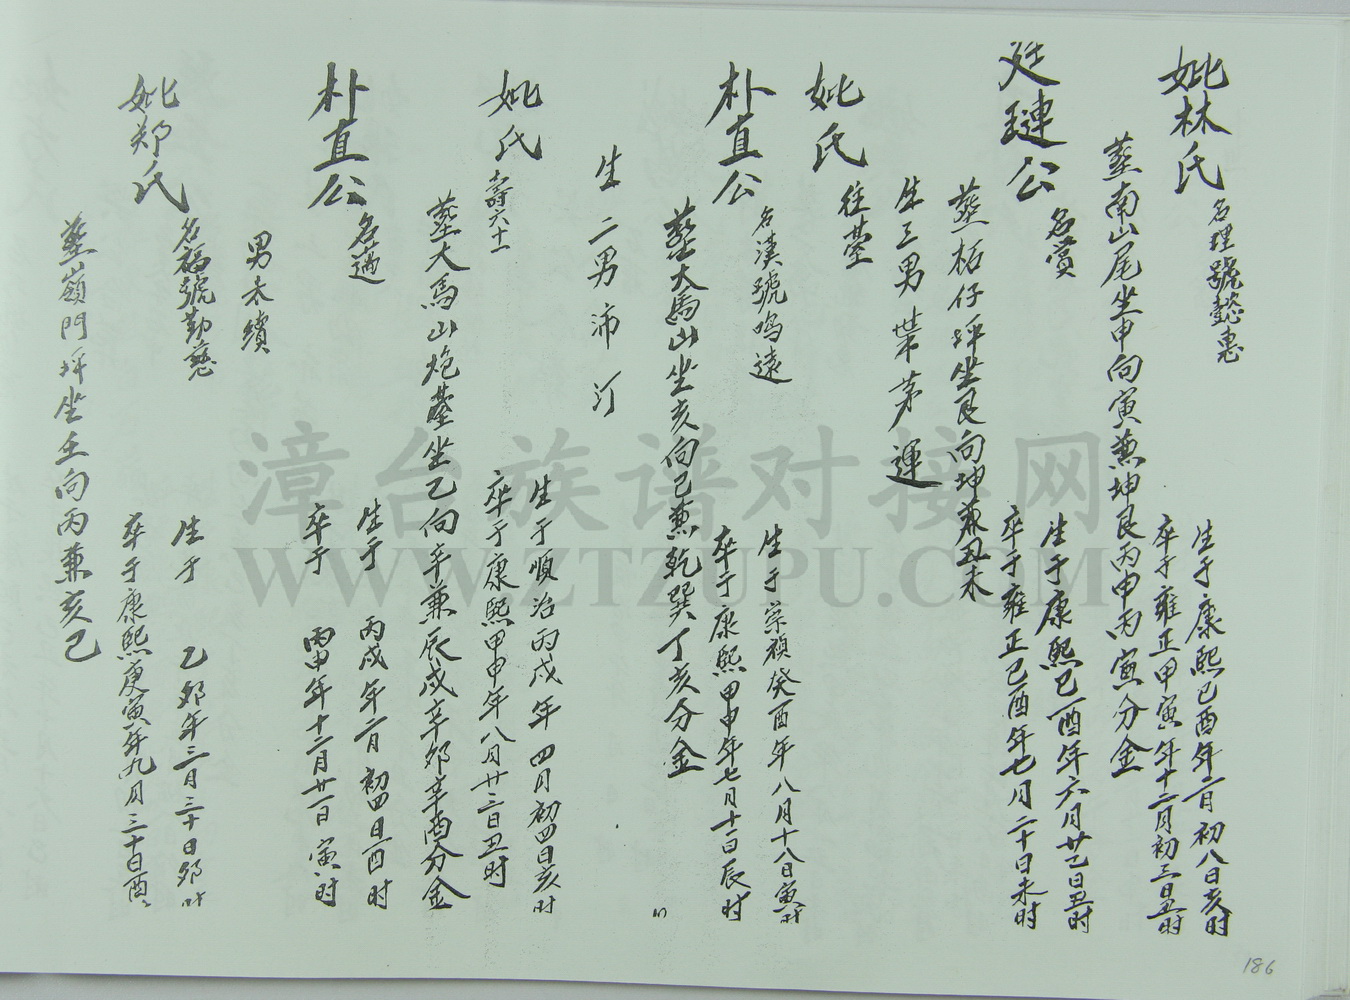 妣林氏 名理號懿惠 生于康熙己酉年二月初八日亥时
卒于雍正甲寅年十二月初三日丑时
葬南山尾坐申向寅兼坤艮丙申丙寅分金
廷璉公 名賞 生于康熙己酉年六月廿乙日丑时
卒于雍正己酉年七月二十日未时
葬柘仔坪坐艮向坤兼丑未
生三男 茅運
妣氏 往臺
朴直公 名漢號鸣遠 生于崇禎癸酉年八月十八日寅时
卒于康熙甲申年七月十二日辰时
葬大馬山坐亥向巳兼乾巽丁亥分金
生二男沛汀
妣氏 壽六十一 生于順治丙戌年四月初四日亥时
卒于康熙甲申年八月廿三日丑时
葬大馬山炮臺坐乙向辛兼辰戌辛卯辛酉分金
朴直公 名過 生于 丙戌年二月初四日酉时
卒于 丙申年十二月廿一日寅时
男未續
妣郑氏 名福號勤慈 生于 乙卯年三月三十日卯时
卒于康熙庚寅年九月三十日酉
葬嶺門坪坐壬向丙兼亥巳
漳台族谱对接网
WWW.ZTZUPU.COM
186